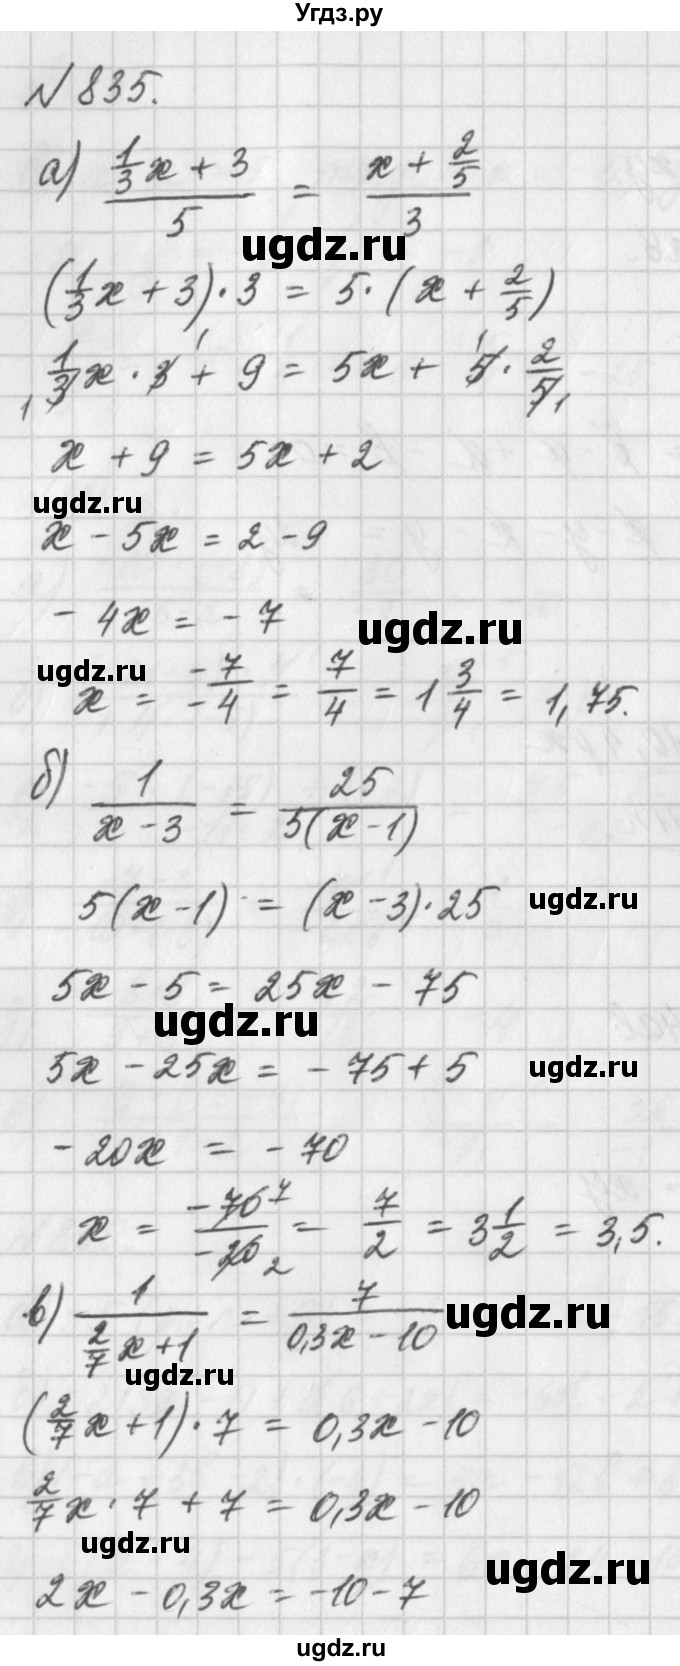 Угдз.ру
№835.
а) (1/3 x + 3)/5 = (x + 2/5)/3
ugdz.ru
(1/3 x + 3)·3 = 5·(x + 2/5)
1/3 x · 3 + 9 = 5x + 5 · 2/5
x + 9 = 5x + 2
ugdz.ru
x - 5x = 2 - 9
- 4x = - 7
ugdz.ru
ugdz.ru
x = -7/-4 = 7/4 = 1 3/4 = 1,75.
б) 1/(x - 3) = 25/(5(x - 1))
5(x - 1) = (x - 3)·25
ugdz.ru
5x - 5 = 25x - 75
ugdz.ru
5x - 25x = - 75 + 5
ugdz.ru
- 20x = - 70
x = -70 7/-20 2 = 7/2 = 3 1/2 = 3,5.
в) 1/(2/7 x + 1) = 7/(0,3x - 10)
ugdz.ru
ugdz.ru
(2/7 x + 1)·7 = 0,3x - 10
2/7 x · 7 + 7 = 0,3x - 10
ugdz.ru
ugdz.ru
2x - 0,3x = -10 - 7
ugdz.ru